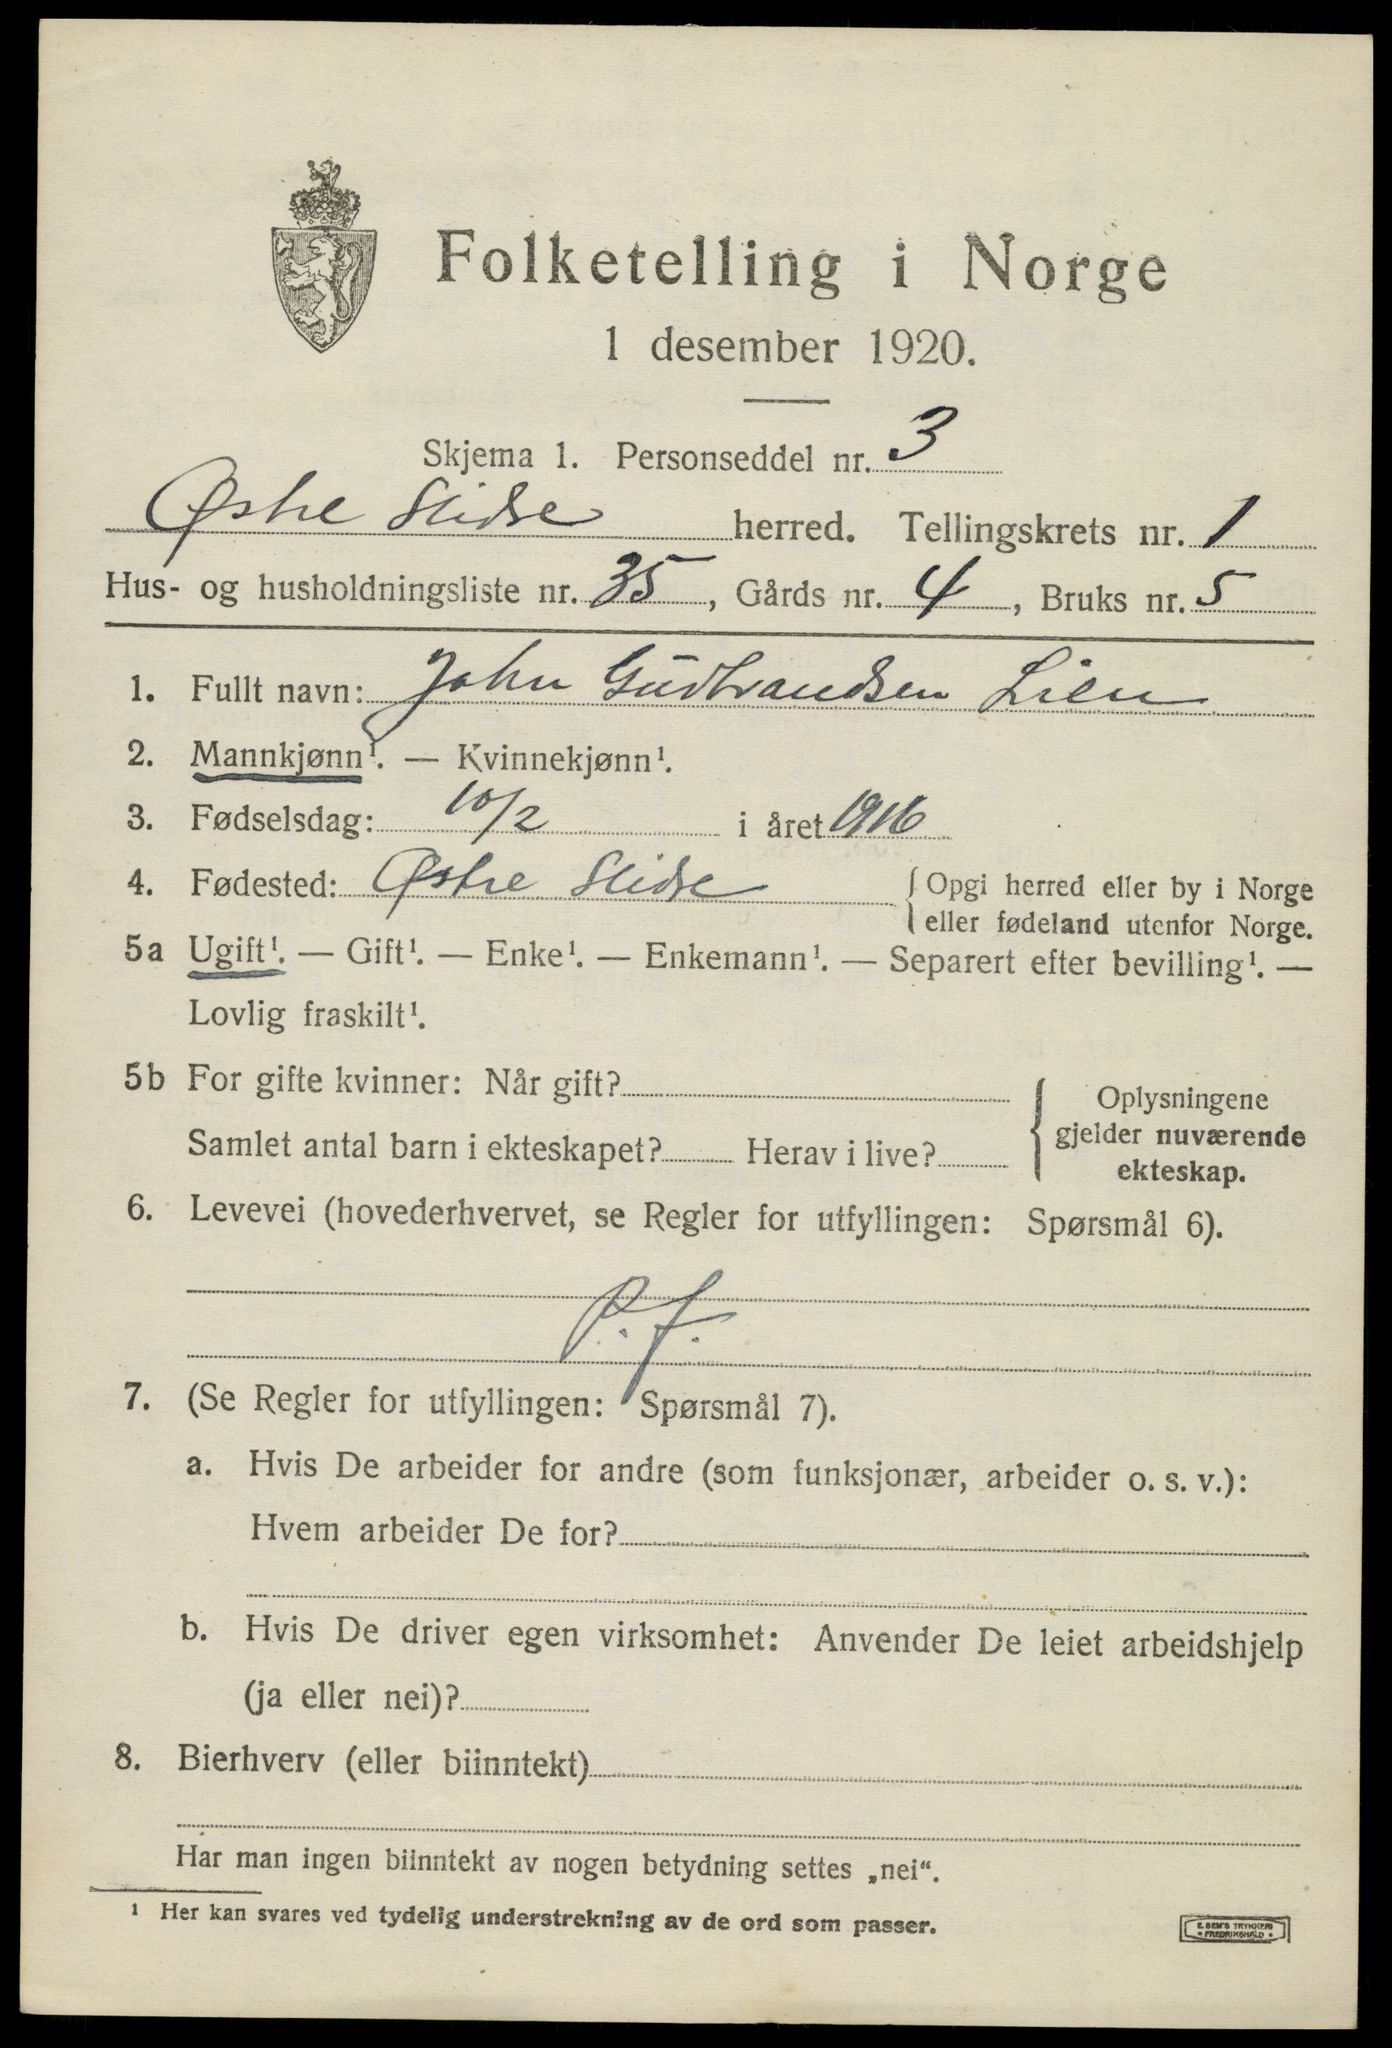 Folketelling i Norge
1 desember 1920.
Skjema 1. Personseddel nr. 3
Østre Slidre herred. Tellingskrets nr. 1
Hus- og husholdningsliste nr. 35, Gårds nr. 4, Bruks nr. 5
1. Fullt navn: John Gudbrandsen Lien
2. Mannkjønn¹. — Kvinnekjønn¹.
3. Fødselsdag: 10/2 i året 1916
4. Fødested: Østre Slidre { Opgi herred eller by i Norge
eller fødeland utenfor Norge.
5a Ugift¹. — Gift¹. — Enke¹. — Enkemann¹. — Separert efter bevilling¹. —
Lovlig fraskilt¹.
5b For gifte kvinner: Når gift? { Oplysningene
gjelder nuværende
ekteskap.
Samlet antal barn i ekteskapet? Herav i live?
6. Levevei (hovederhvervet, se Regler for utfyllingen: Spørsmål 6).
P. f.
7. (Se Regler for utfyllingen: Spørsmål 7).
a. Hvis De arbeider for andre (som funksjonær, arbeider o. s. v.):
Hvem arbeider De for?
b. Hvis De driver egen virksomhet: Anvender De leiet arbeidshjelp
(ja eller nei)?
8. Bierhverv (eller biinntekt)
Har man ingen biinntekt av nogen betydning settes „nei“.
¹ Her kan svares ved tydelig understrekning av de ord som passer.
E. SEM'S TRYKKERI
• FREDRIKSHALD •